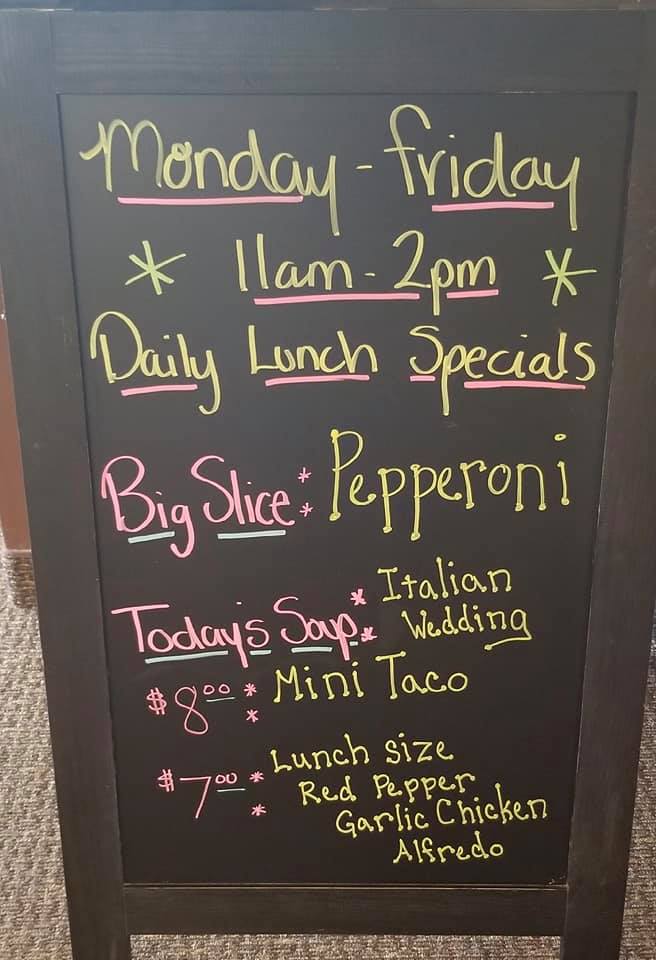 Monday - friday
* 11am - 2pm *
Daily Lunch Specials
Big Slice: Pepperoni
Today's Soup: Italian
Wedding
$8.00: Mini Taco
$7.00: Lunch size
Red Pepper
Garlic Chicken
Alfredo